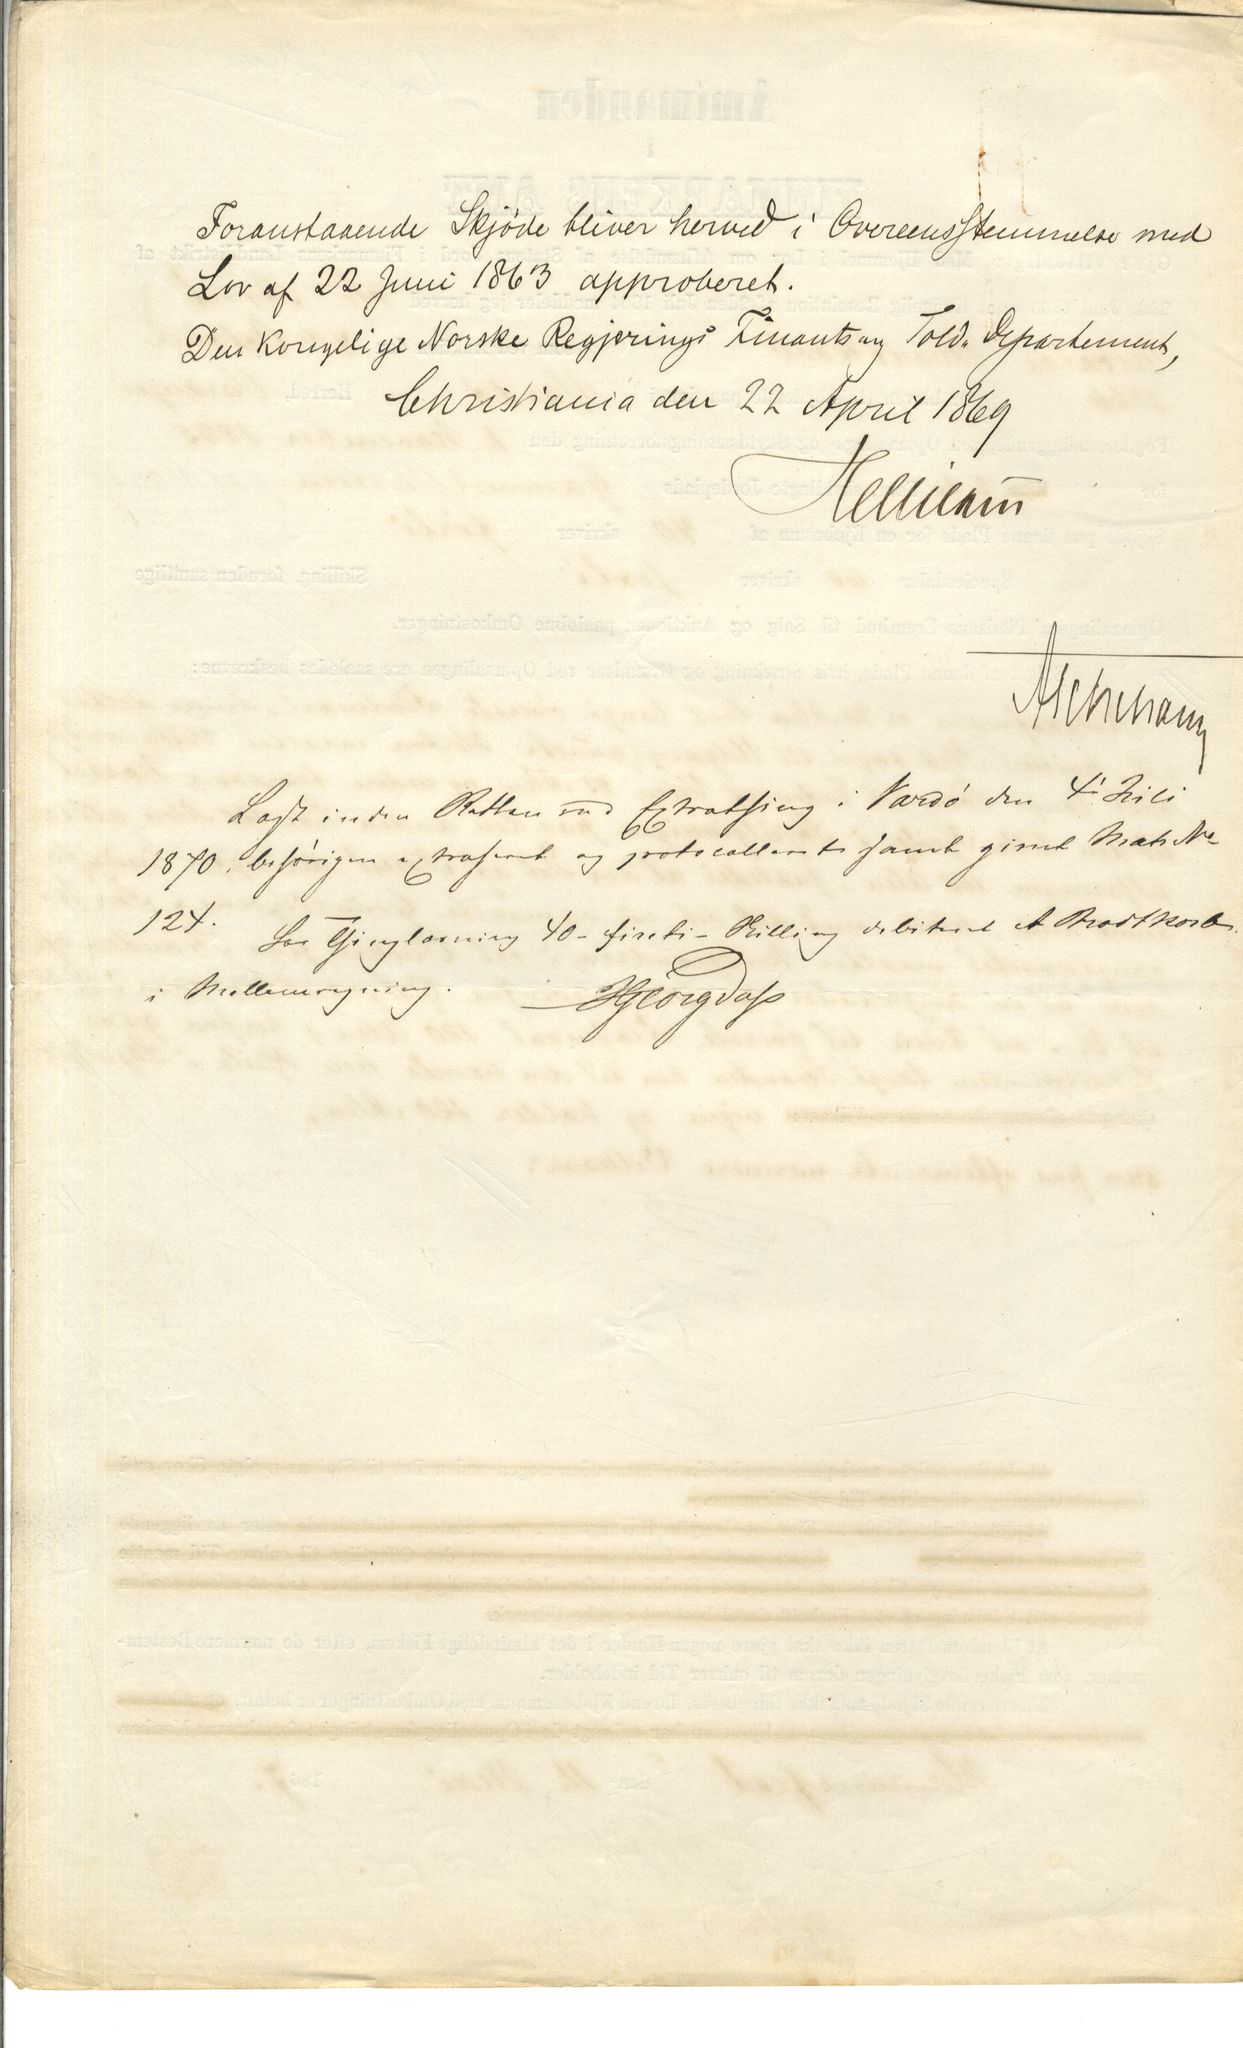 Foranstaaende Skjöde bliver herved i Overeensstemmelse med
Lov af 22 Juni 1863 approberet.
Den Kongelige Norske Regjerings Finants og Told-Departement,
Christiania den 22 April 1869
Helliesen
Læst inden Retten ved Extrathing i Vardö den 4de Juli
1870, behörigen extraheret og protocolleret samt givet Matr. No
124. For Thinglæsning 40 - fireti - Skilling debiteret A Brodtkorb
i Mellemregning.